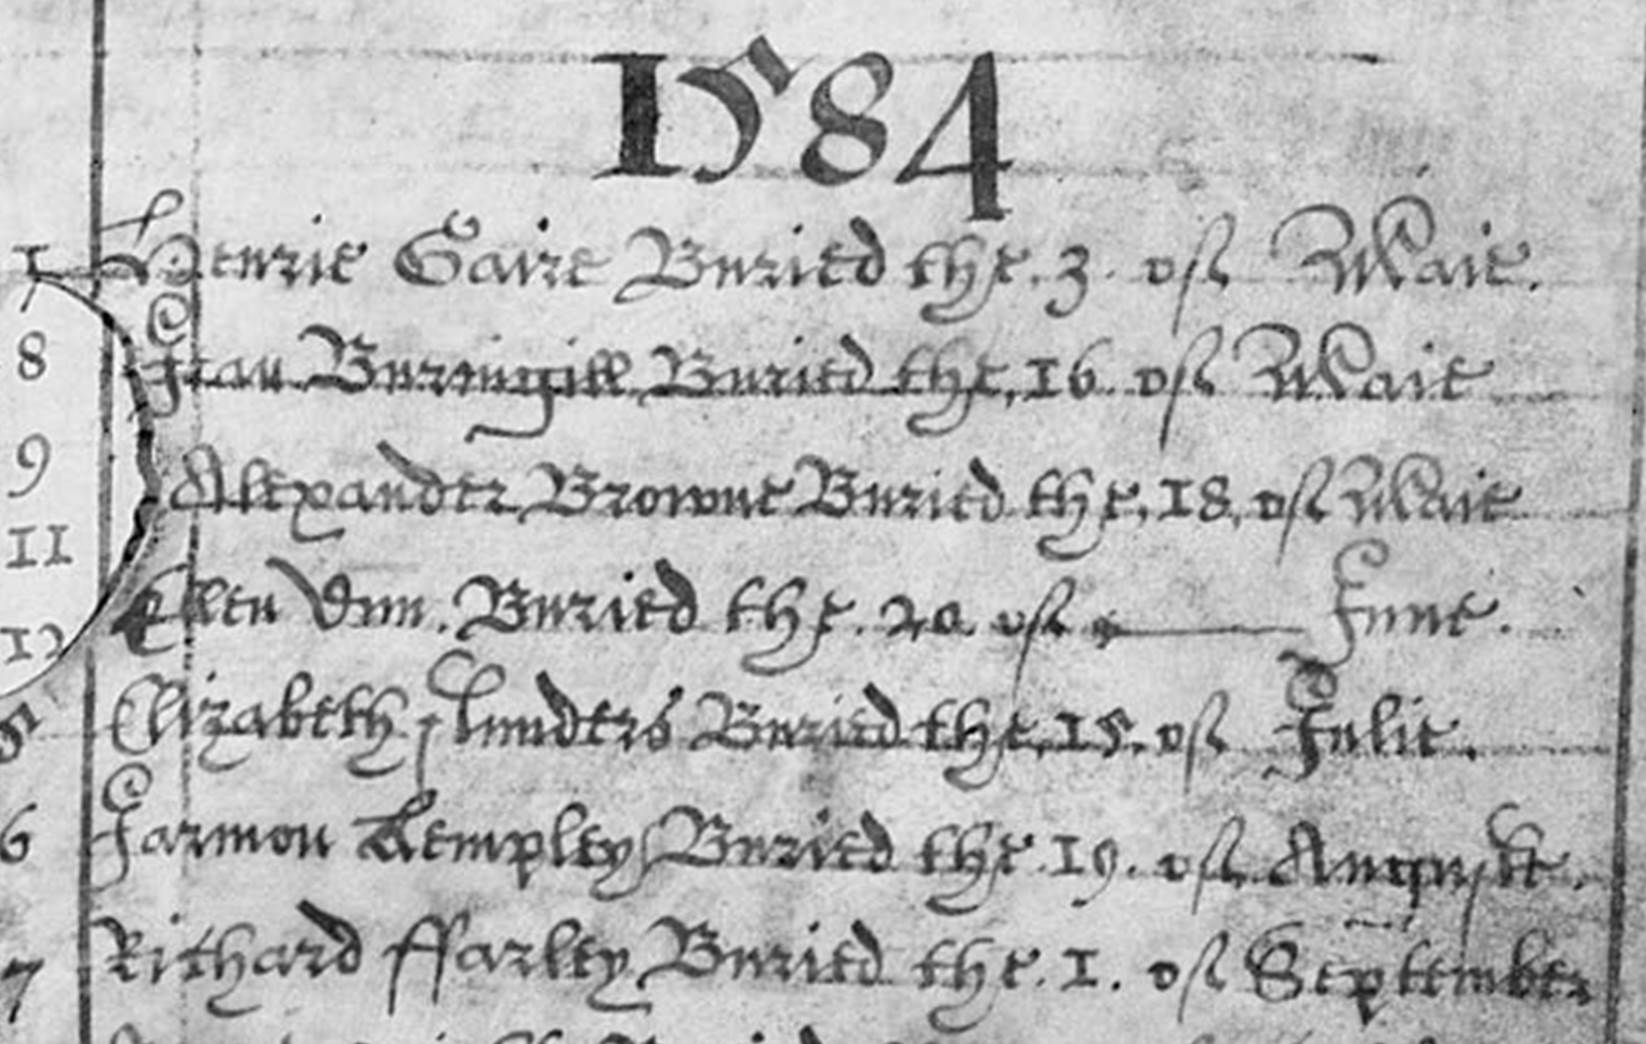 1584
1 Henrie Gaire Buried the. 3. of Maie.
8 Jean Buringill Buried the. 16. of Maie
9 Alexander Browne Buried the. 18. of Maie
11
12 Ellen Dun. Buried the. 20. of June.
5 Elizabeth Flunders Buried the. 15. of Julie.
6 Jarmon Kempley Buried the. 19. of August.
7 Richard ffarley Buried the. 1. of September